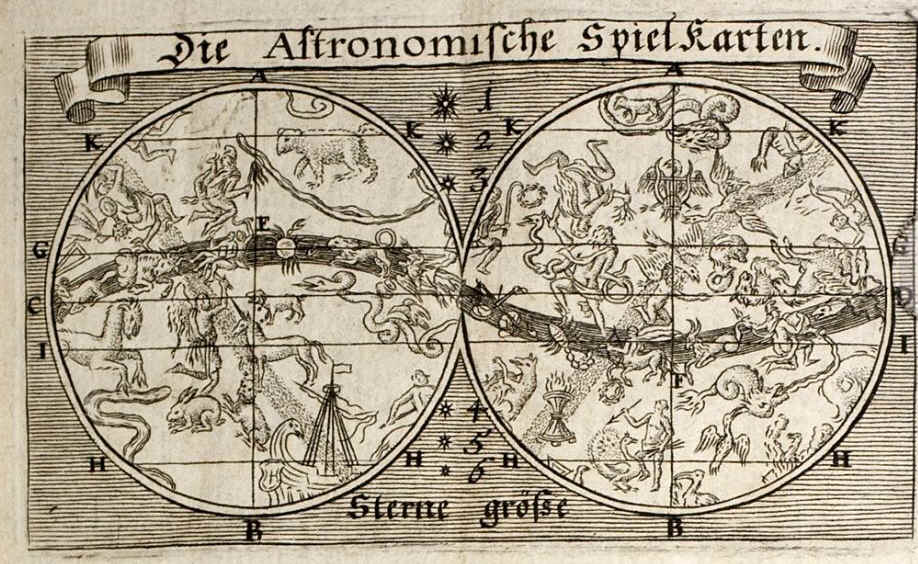 Die Aſtronomiſche Spiel Karten.
A
A
1
K
K
2
K
K
3
G
F
G
C
D
I
I
F
4
5
H
H
6
H
H
Sterne größe
B
B